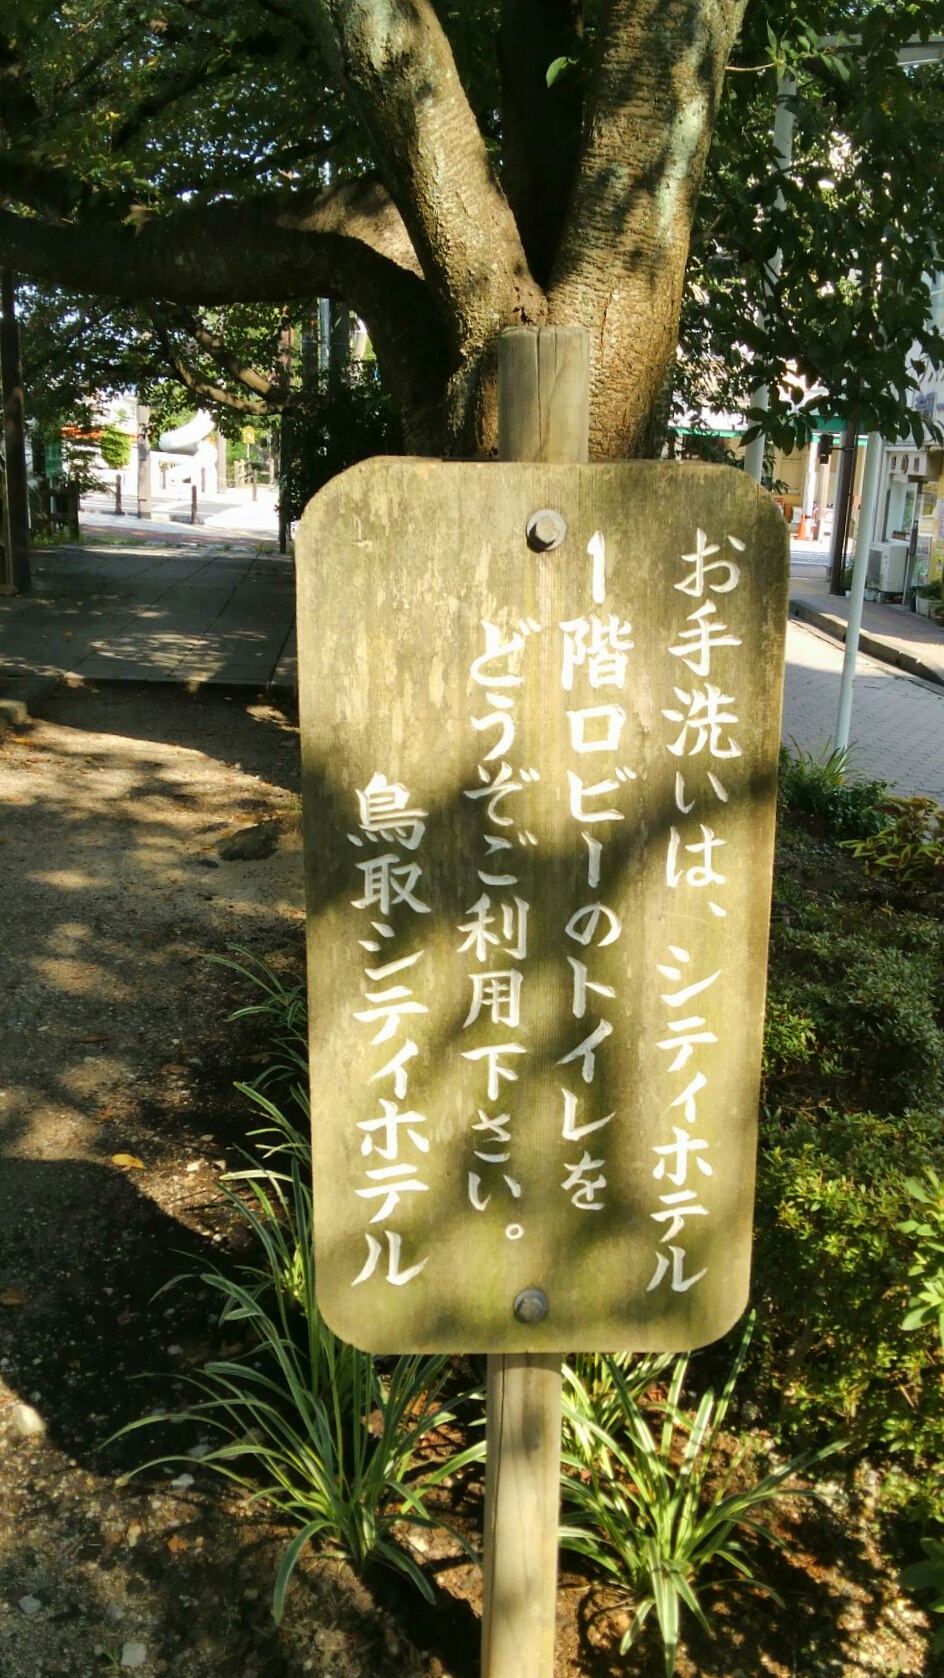 お手洗いは、シティホテル
1階ロビーのトイレを
どうぞご利用下さい。
鳥取シティホテル